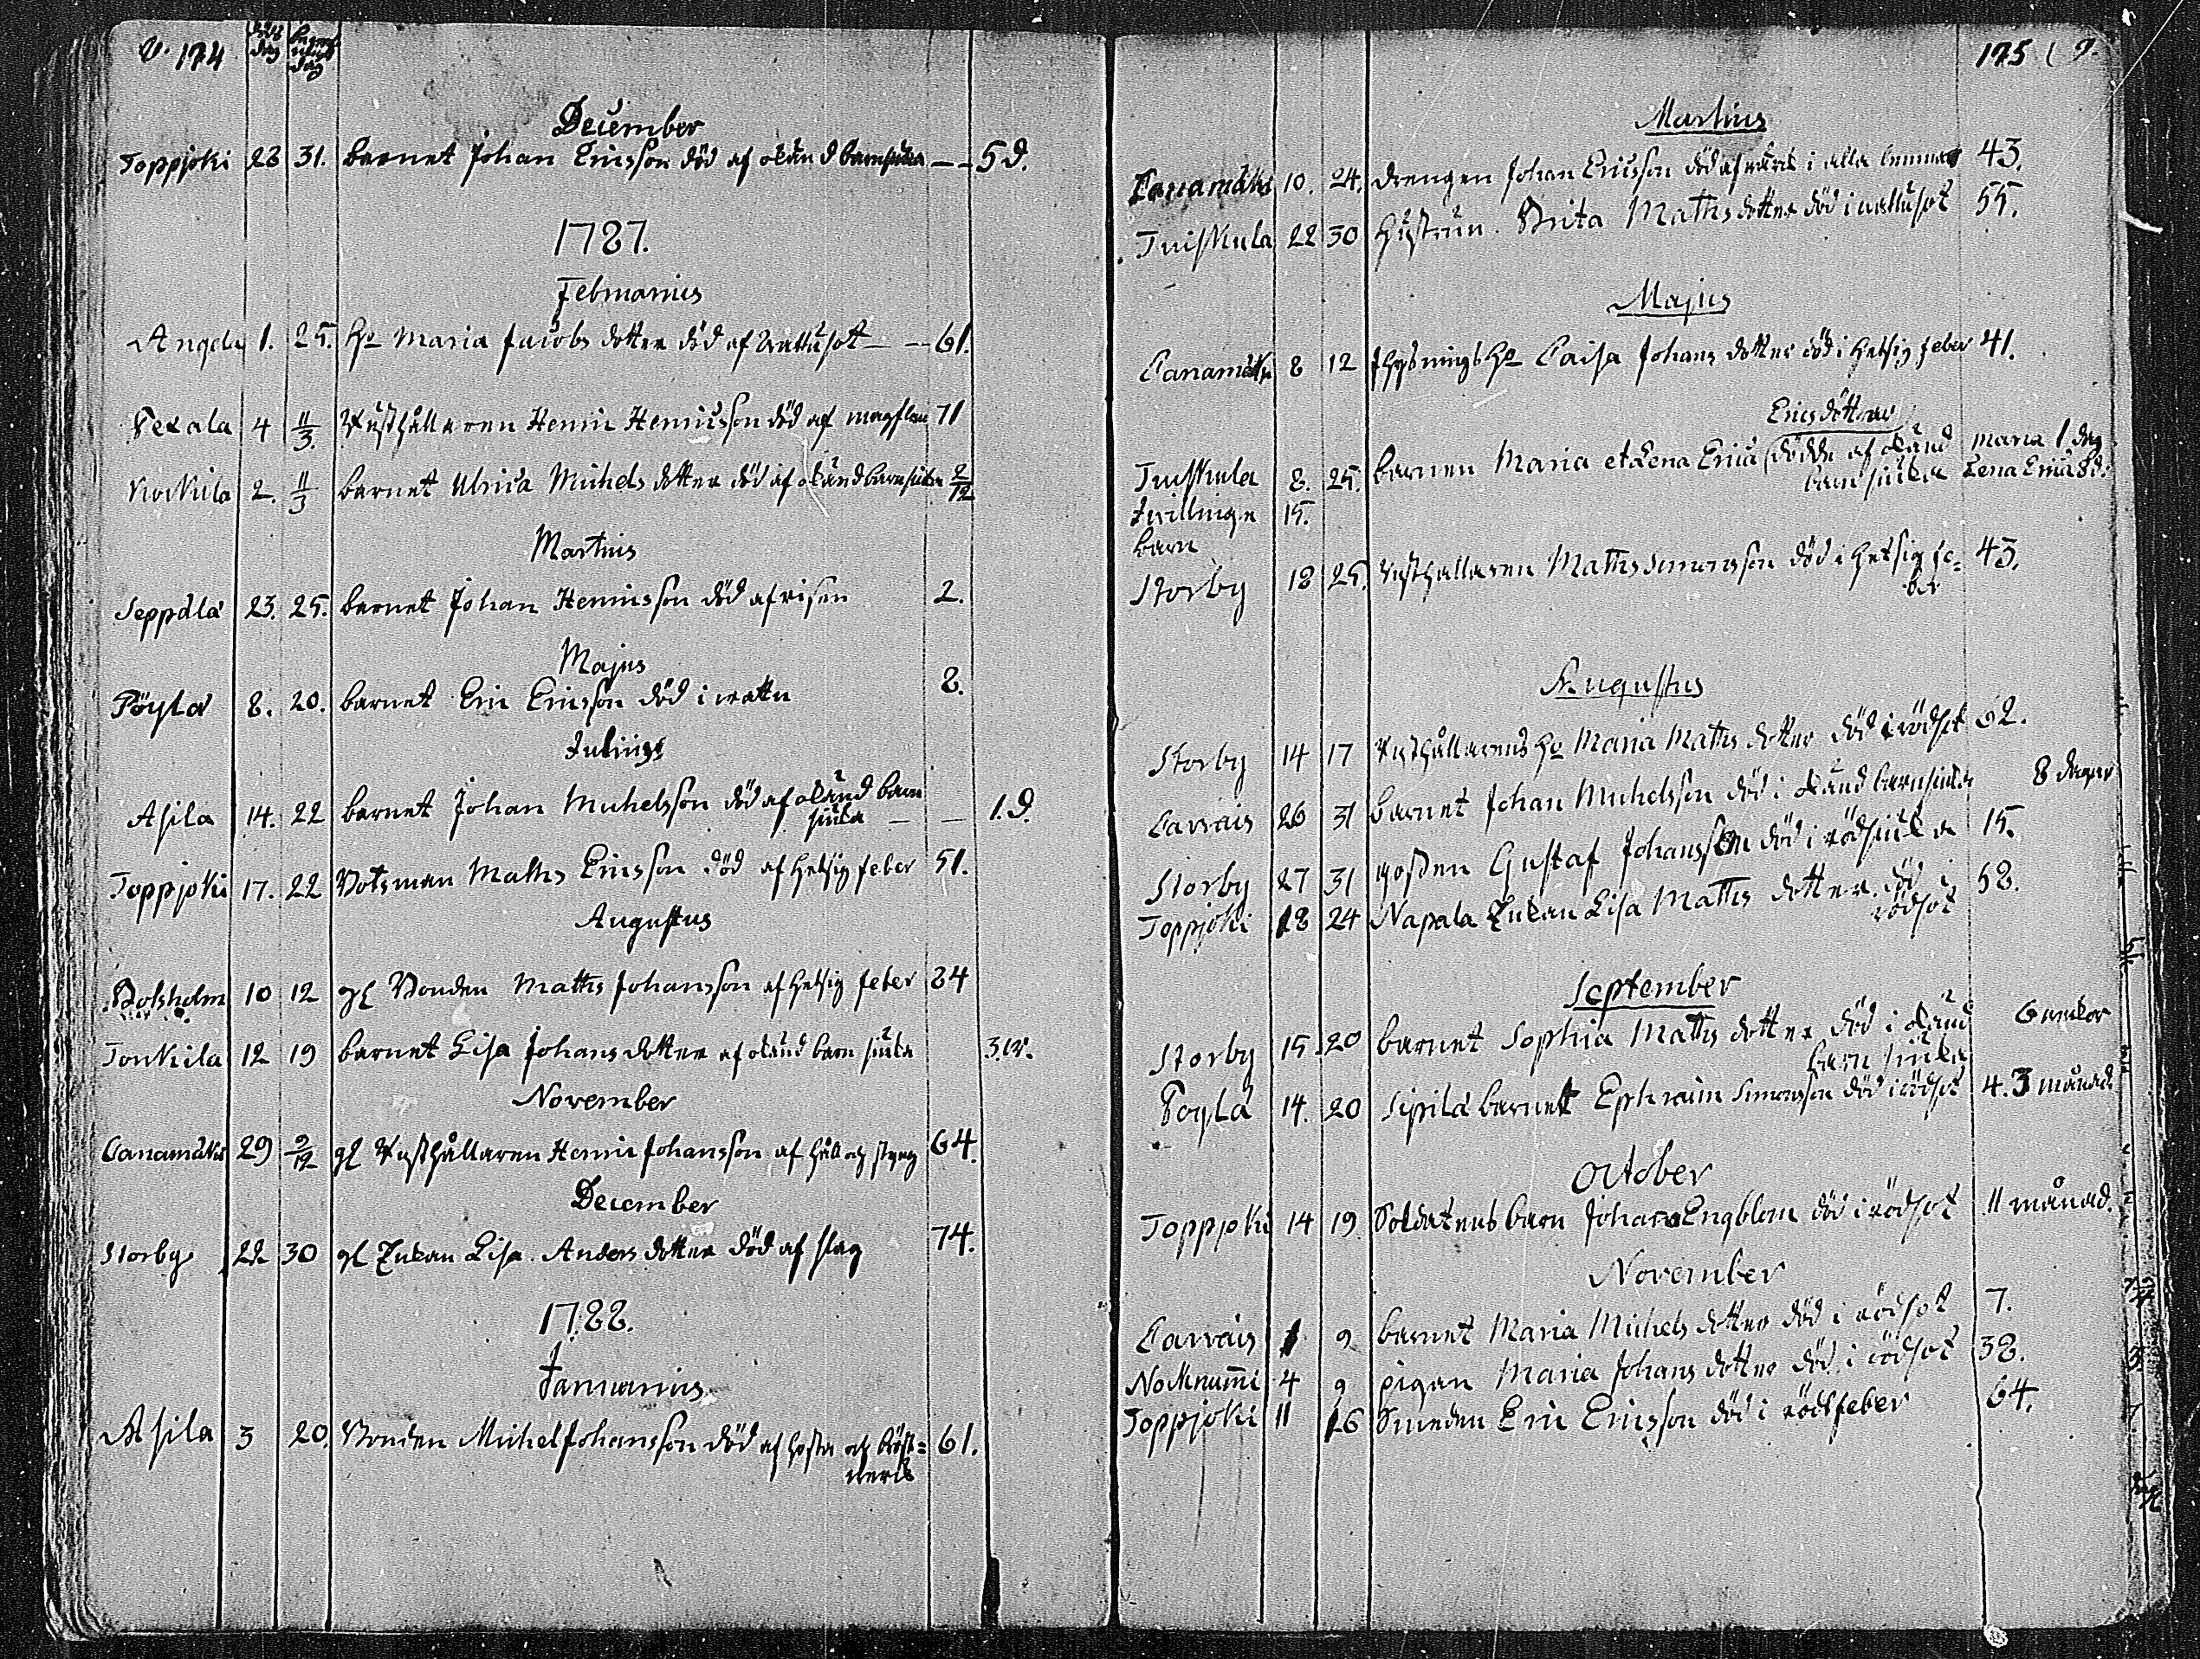 174
död dag
begrafn dag
December
Toppjoki 23 31. barnet Johan Ericsson död af okänd barnsiuka — — 5 d.
1787.
Februarius
Angela 1. 25. Ho Maria Jacobs dotter död af wattusot — — 61.
4 11/3. Rusthållaren Henric Henricsson död af 71
2. 11/3 barnet Ulrica Michels dotter död af okänd barnsiuka 2/12
Martius
Seppälä 23. 25. barnet Johan Henricsson död af risen 2.
Majus
Pöylä 8. 20. barnet Eric Ericsson död i wattn 8.
Julius
Asila 14. 22 barnet Johan Michelsson död af okänd barn
siuka — — 1. d.
Toppjoki 17. 22 Botsman Matts Ericsson död af hetsig feber 51.
Augustus
Bolsholm 10 12 gl Bonden Matts Johansson af hetsig feber 84
Tonkila 12 19 barnet Lisa Johans dotter af okänd barn siuka 3. w.
November
Canamäki 29 2/12 gl Rusthållaren Henric Johansson af håll och styng 64.
December
Storby 22 30 gl Enkan Lisa Anders dotter död af slag 74.
1788.
Januarius
Asila 3 20. Bonden Michel Johansson död af hosta och bröst=
werck 61.
175
Martius
Canamäki 10. 24. Drengen Johan Ericsson död af werck i alla lemmar 43.
Tuiskula 22 30 Hustrun Brita Matts dotter död i wattusot 55.
Majus
Canamäki 8 12 Hysnings Ho Caisa Johans dotter död i hetsig feber 41.
Erics döttrar
Tuiskula 8. 25. barnen Maria et Lena Erica dödde af okänd Maria 1 dag
Twillinge 15. barnsiuka Lena Erica 8 d.
barn
Storby 18 25. Rusthållaren Matts Simonsson död i hetsig fe=
ber 43.
Augustus
Storby 14 17 Rusthållarens Ho Maria Matts dotter död i rödsot 62.
Carrais 26 31 barnet Johan Michelsson död i okänd barnsiuka 8 dagar
Storby 27 31 gossen Gustaf Johansson död i rödsiuka 15.
Toppjoki 18 24 Napala Enkan Lisa Matts dotter död i
rödsot 58.
September
Storby 15 20 barnet Sophia Matts dotter död i okänd
barn siuka 6 weckor
Pöylä 14. 20 Sipilä barnet Ephraim Simonsson död i rödsot 4. 3 månad
October
Toppjoki 14 19. Soldatens barn Johan Engblom död i rödsot 11 månad.
November
Carrais 1 9 barnet Maria Michels dotter död i rödsot 7.
Nokknummi 4 9 pigan Maria Johans dotter död i rödsot 38.
Toppjoki 11 16 Smeden Eric Ericsson död i rötfeber 64.